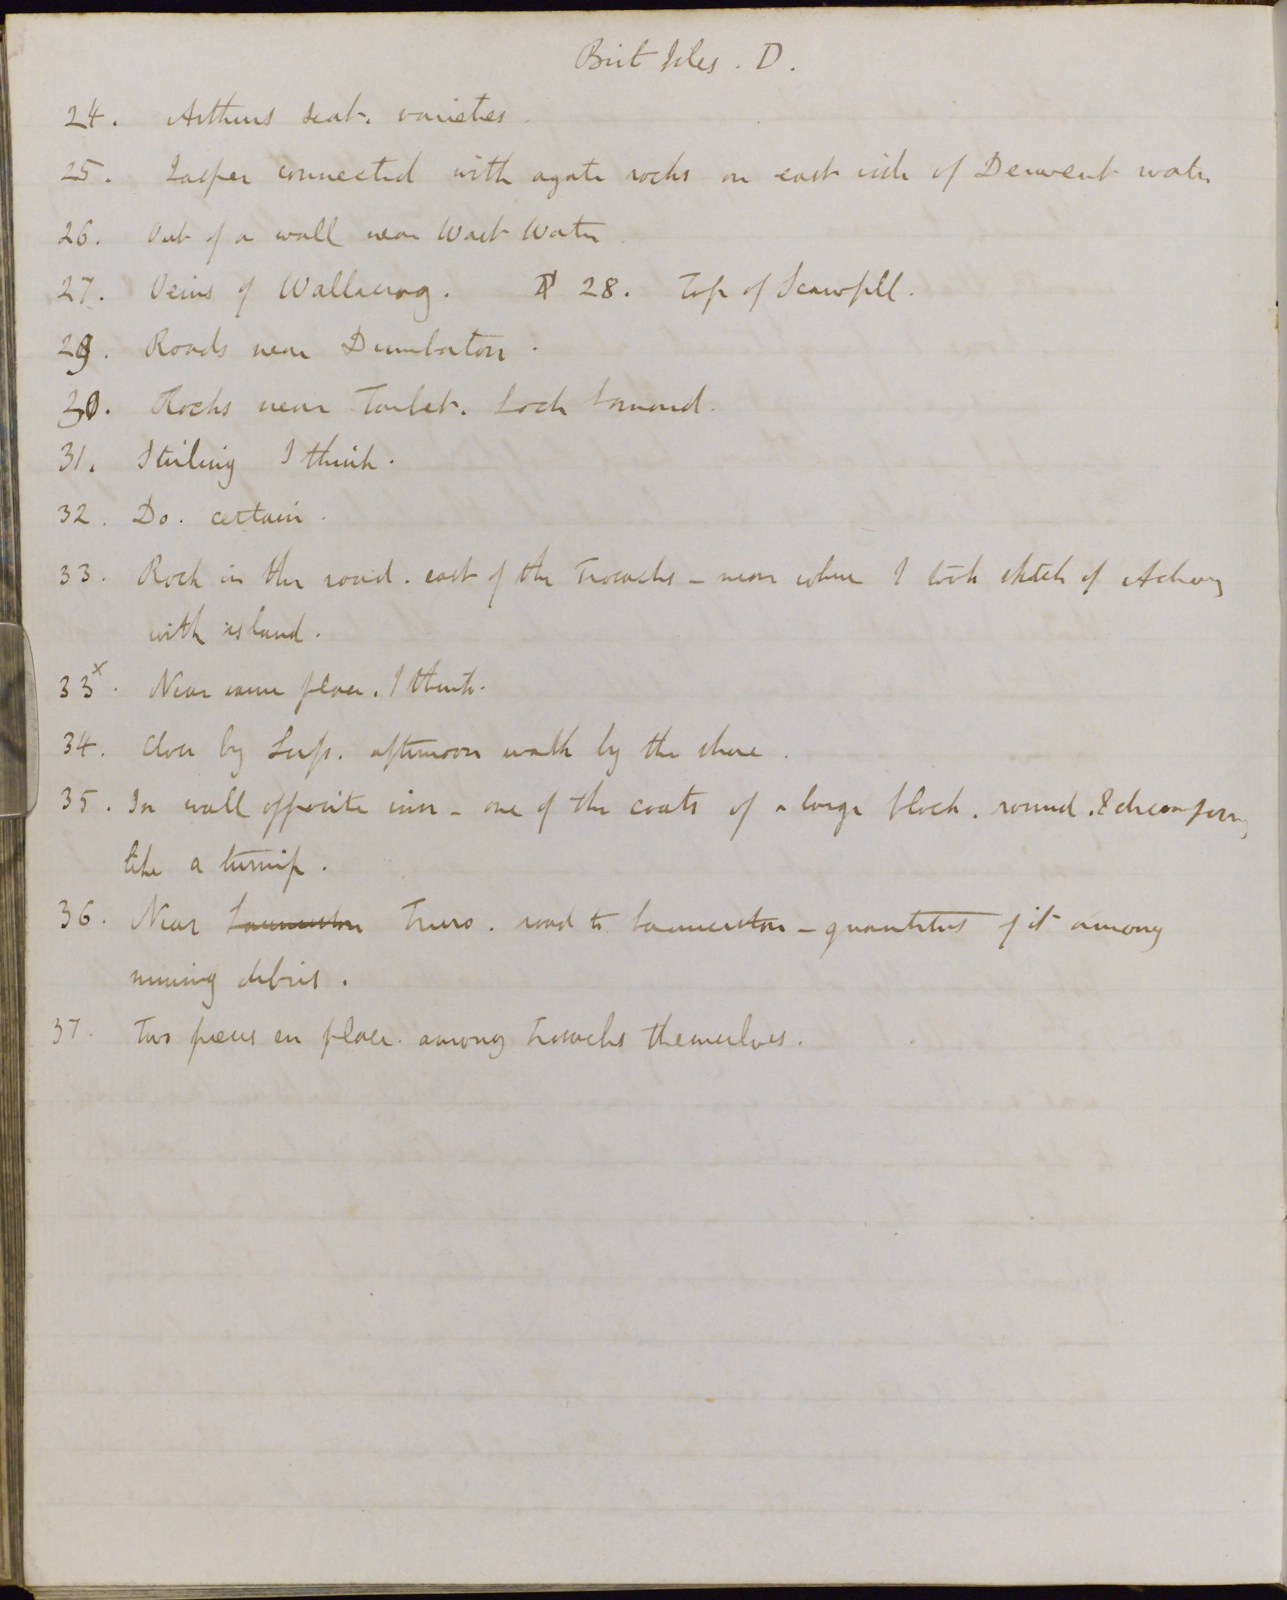 Brit Isles. D.
24. Arthurs Seat. varieties.
25. Jasper connected with agate rocks on east side of Derwent water
26. Out of a wall near Wast Water
27. Veins of Wallacrag. 28. Top of Scawfell.
29. Roads near Dumbarton.
30. Rocks near Tarbet. Loch Lomond.
31. Stirling I think.
32. Do. certain.
33. Rock in the road. east of the Trosachs - near where I took sketch of Achray
with island.
33x. Near same place. I think.
34. Close by Luss. afternoon walk by the shore.
35. In wall opposite inn - one of the coats of a large block. round. & decomposing
like a turnip.
36. Near Launceston Truro. road to Launceston - quantities of it among
mining debris.
37. Two pieces in place. among Trosachs themselves.